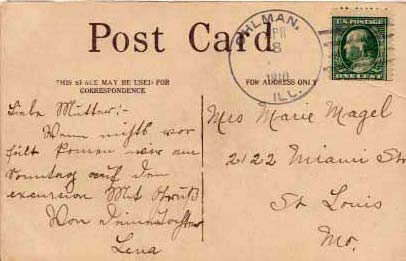 Post Card
THIS SPACE MAY BE USED FOR
CORRESPONDENCE
FOR ADDRESS ONLY
OHLMAN,
APR
8
1910
ILL.
U.S. POSTAGE
ONE CENT
Liebe Mutter:-
Wenn nichts vor
fält komen wir am
Sonntag auf dem
excursion Mit Gruß
Von Deine Tochter
Lena
Mrs Marie Magel
2122 Miami Str
St Louis
Mo.